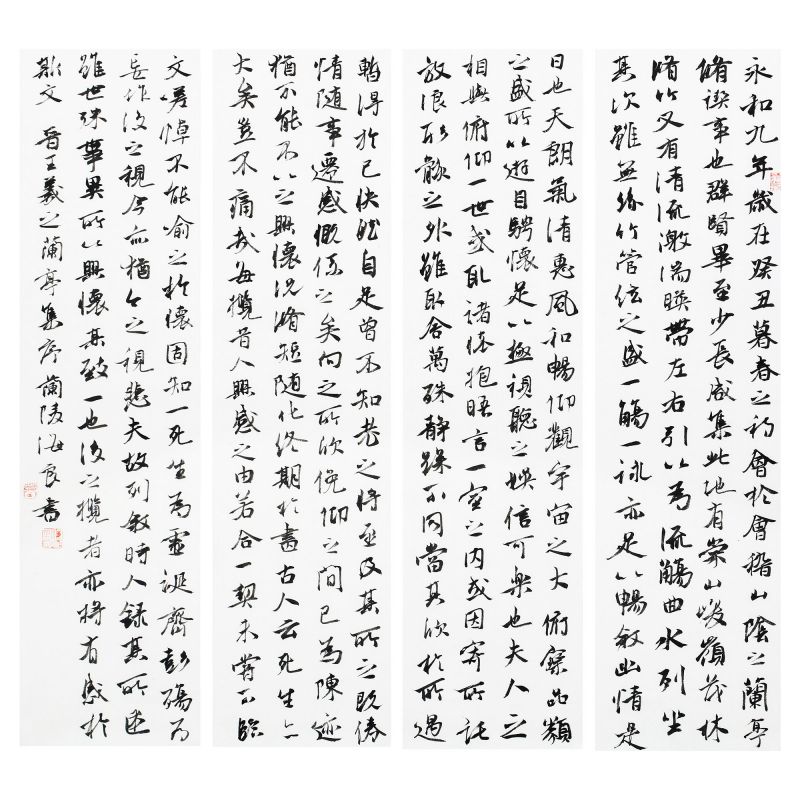 永和九年歲在癸丑暮春之初會於會稽山陰之蘭亭
脩禊事也群賢畢至少長咸集此地有崇山峻嶺茂林
脩竹又有清流激湍暎帶左右引以為流觴曲水列坐
其次雖無絲竹管弦之盛一觴一詠亦足以暢敘幽情是
日也天朗氣清惠風和暢仰觀宇宙之大俯察品類
之盛所以遊目騁懷足以極視聽之娛信可樂也夫人之
相與俯仰一世或取諸懷抱晤言一室之內或因寄所託
放浪形骸之外雖取舍萬殊靜躁不同當其欣於所遇
暫得於己快然自足曾不知老之將至及其所之既倦
情隨事遷感慨係之矣向之所欣俛仰之間已為陳迹
猶不能不以之興懷況脩短隨化終期於盡古人云死生亦
大矣豈不痛哉每攬昔人興感之由若合一契未嘗不臨
文嗟悼不能喻之於懷固知一死生為虛誕齊彭殤為
妄作後之視今亦猶今之視悲夫故列敘時人錄其所述
雖世殊事異所以興懷其致一也後之攬者亦將有感於
斯文 晉王羲之蘭亭集序 蘭陵海良書